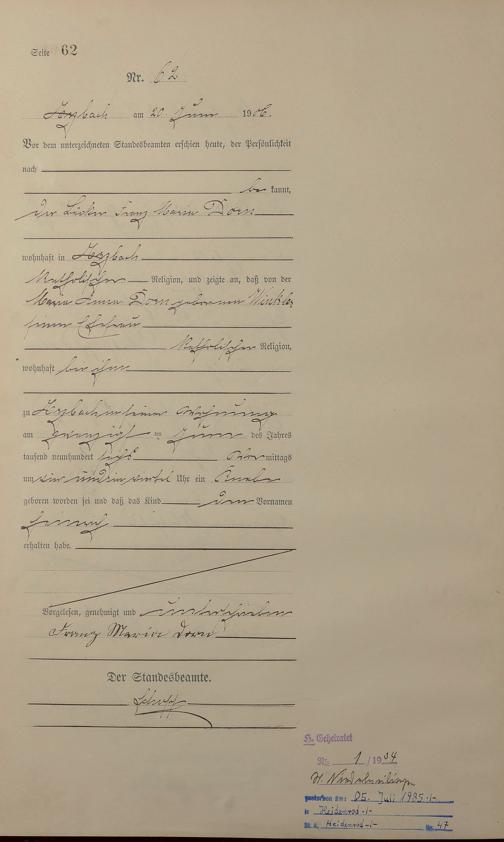 Seite 62
Nr. 62
am 20 Juni 1906.
Vor dem unterzeichneten Standesbeamten erschien heute, der Persönlichkeit
nach
be kannt,
der Franz Maria Dorn
wohnhaft in
Katholischer Religion, und zeigte an, daß von der
Maria Anna Dorn geborenen Winkler
seiner Ehefrau
Katholischer Religion,
wohnhaft bei ihm
zu in seiner Wohnung
am zwanzigsten Juni des Jahres
tausend neunhundert sechs Vor mittags
um ein und ein viertel Uhr ein Knabe
geboren worden sei und daß das Kind den Vornamen
Heinrich
erhalten habe.
Vorgelesen, genehmigt und unterschrieben
Franz Maria Dorn
Der Standesbeamte.
H. Geheiratet
Nr. 1 / 1934
gestorben am: 05. Juli 1985-/-
in Heidenrod-/-
St. A. Heidenrod-/- Nr. 47